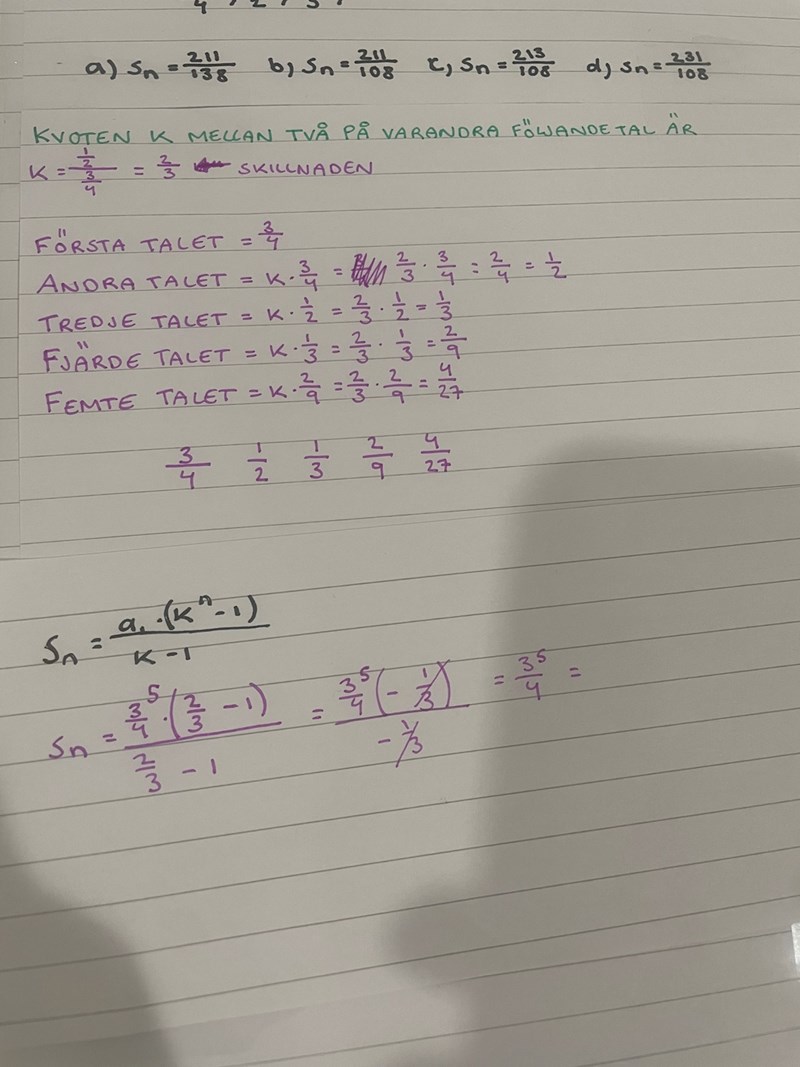 a) Sn = 211/138 b) Sn = 211/108 c) Sn = 213/108 d) Sn = 231/108
KVOTEN K MELLAN TVÅ PÅ VARANDRA FÖLJANDE TAL ÄR
K = (1/2)/(3/4) = 2/3 ← SKILLNADEN
FÖRSTA TALET = 3/4
ANDRA TALET = K · 3/4 = 2/3 · 3/4 = 2/4 = 1/2
TREDJE TALET = K · 1/2 = 2/3 · 1/2 = 1/3
FJÄRDE TALET = K · 1/3 = 2/3 · 1/3 = 2/9
FEMTE TALET = K · 2/9 = 2/3 · 2/9 = 4/27
3/4 1/2 1/3 2/9 4/27
Sn = a₁ · (Kⁿ - 1) / K - 1
Sn = 3/4⁵ · (2/3 - 1) / 2/3 - 1 = 3/4⁵ (- 1/3) / - 1/3 = 3⁵/4 =